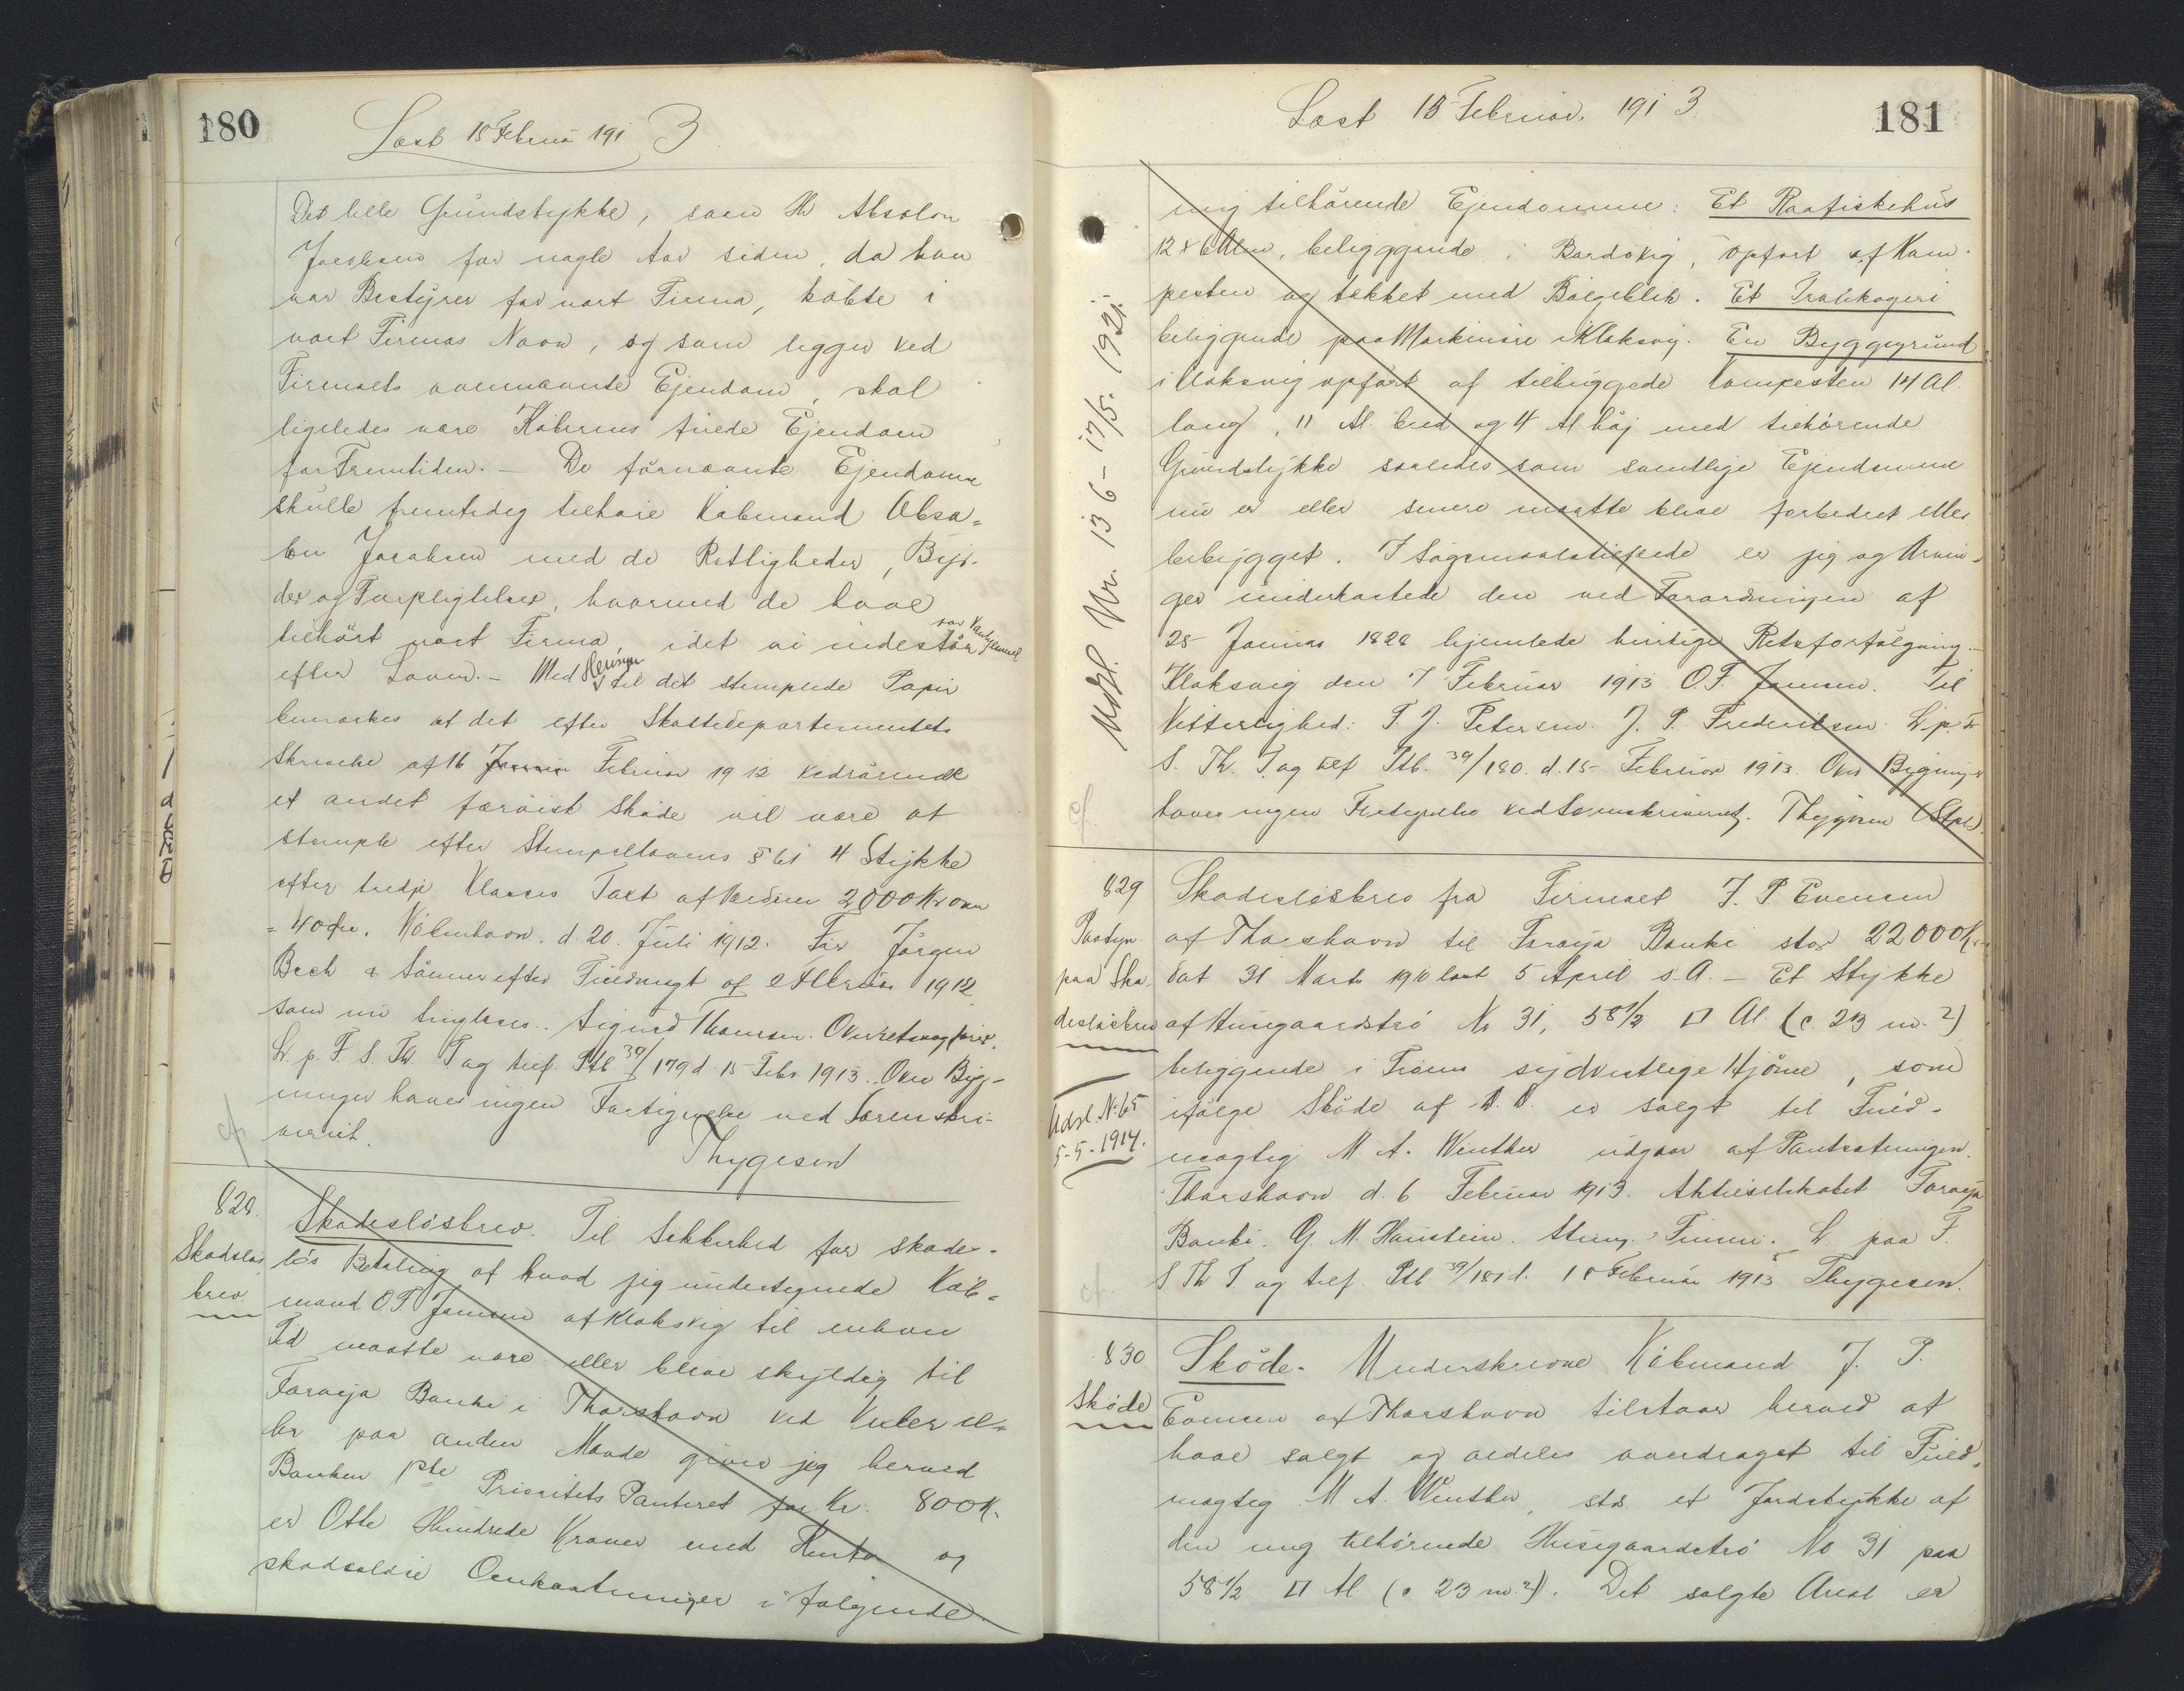 180
Læst 15 Februa 1913
Det lille Grundstykke, som Hr Absalon
Jacobsen for nogle Aar siden, da han
var Bestyrer for vort Firma, købte i
vort Firmas Navn, og som ligger ved
Firmaets ovennævnte Ejendom, skal
ligeledes være Køberens fuede Ejendom
for Fremtiden. — De førnævnte Ejendomme
skulle fremtidig tilhøre Købmand Absa-
lon Jacobsen med de Rettigheder, Byr-
der og Forpligtelser, hvormed de have
tilhørt vort Firma, idet vi indestaar som Vanhjemmel
efter Loven. — Med Hensyn til det stemplede Papir
bemærkes at det efter Skattedepartementets
Skrivelse af 16 Februar 1912 vedrørende
et andet færøisk Skøde vil være at
stemple efter Stempellovens § 61 4 Stykke
efter tredje Klasses Taxt af Værdien 2000 Kroner
= 40 Øre. København. d. 20. Juli 1912. For Jørgen
Bech & Sønner efter Fuldmagt af 1912
som nu tinglæses. Sigurd Thomsen. Overretssagfører.
L. p. F. S. Th. T og tilf. Ptb 30/179 d. 15 Febr 1913. Over Byg-
ninger haves ingen Fortegnelse ved Sorenskri-
veriet.
Thygesen
828.
Skadeslos
brev
Skadesløsbrev. Til Sikkerhed for skades-
løs Betaling af hvad jeg undertegnede Køb-
mand O F Joensen af Klaksvig til enhver
Tid maatte være eller blive skyldig til
Førøja Banki i Thorshavn ved Veksler el-
ler paa anden Maade giver jeg herved
Banken 1ste Prioritets Panteret for Kr. 800 Kr.
er Otte Hundrede Kroner med Renter og
skadesløse Omkostninger i følgende
181
Læst 15 Februar. 1913.
mig tilhørende Ejendomme: Et Raafiskehus
12 x 6 Alen, beliggende i Bordøvig, opført af Kam-
pesten og tækket med Bølgeblik. Et Trankogeri
beliggende paa Markinöre i Klaksvig. En Byggegrund
i Klaksvig opført af tilhuggede Kampesten 14 Al.
lang, 11 Al. bred og 4 Al høj med tilhørende
Grundstykke saaledes som samtlige Ejendomme
nu er eller senere maatte blive forbedret eller
bebygget. I Søgsmaalstilfælde er jeg og Arvin-
ger underkastede den ved Forordningen af
25 Januar 1828 hjemlede hurtige Retsforfølgning. —
Klaksvig den 7 Februar 1913 O. F. Joensen. Til
Vitterlighed: P. J. Petersen. J. P. Frederiksen. L. p. F
S. Th. T. og tilf Ptb. 30/180. d. 15 Februar 1913. Over Bygninger
haves ingen Fortegnelse ved Sorenskriveriet. Thygesen (Stpl)
Udsl. Nr. 136 - 17/5. 1921.
829
Paategn.
paa Ska-
desløsbrev
Udsl. N: 65
5-5-1914.
Skadesløsbrev fra Firmaet J. P Evensen
af Thorshavn til Førøja Banki stor 22000 Kr.
dat 31 Marts 1910 læst 5 April s. A. — Et Stykke
af Husgaardstrø No 31, 58 1/2 □ Al. (c. 23 m.²)
beliggende i Trøens sydvestlige Hjørne, som
ifølge Skøde af D. D. er solgt til Fuld-
mægtig M. A. Winther udgaar af Pantsætningen.
Thorshavn d. 6 Februar 1913. Aktieselskabet Førøja
Banki. G. M. Hanstein. L. paa F.
S. Th T. og tilf. Ptb 30/181 d. 15 Februar 1913 Thygesen.
830.
Skøde
Skøde. Underskrevne Købmand J. P.
Evensen af Thorshavn tilstaar herved at
have solgt og aldeles overdraget til Fuld-
mægtig M A. Winther, sts. et Jordstykke af
den mig tilhørende Husgaardstrø No 31 paa
58 1/2 □ Al. (c 23 m.²). Det solgte Areal er